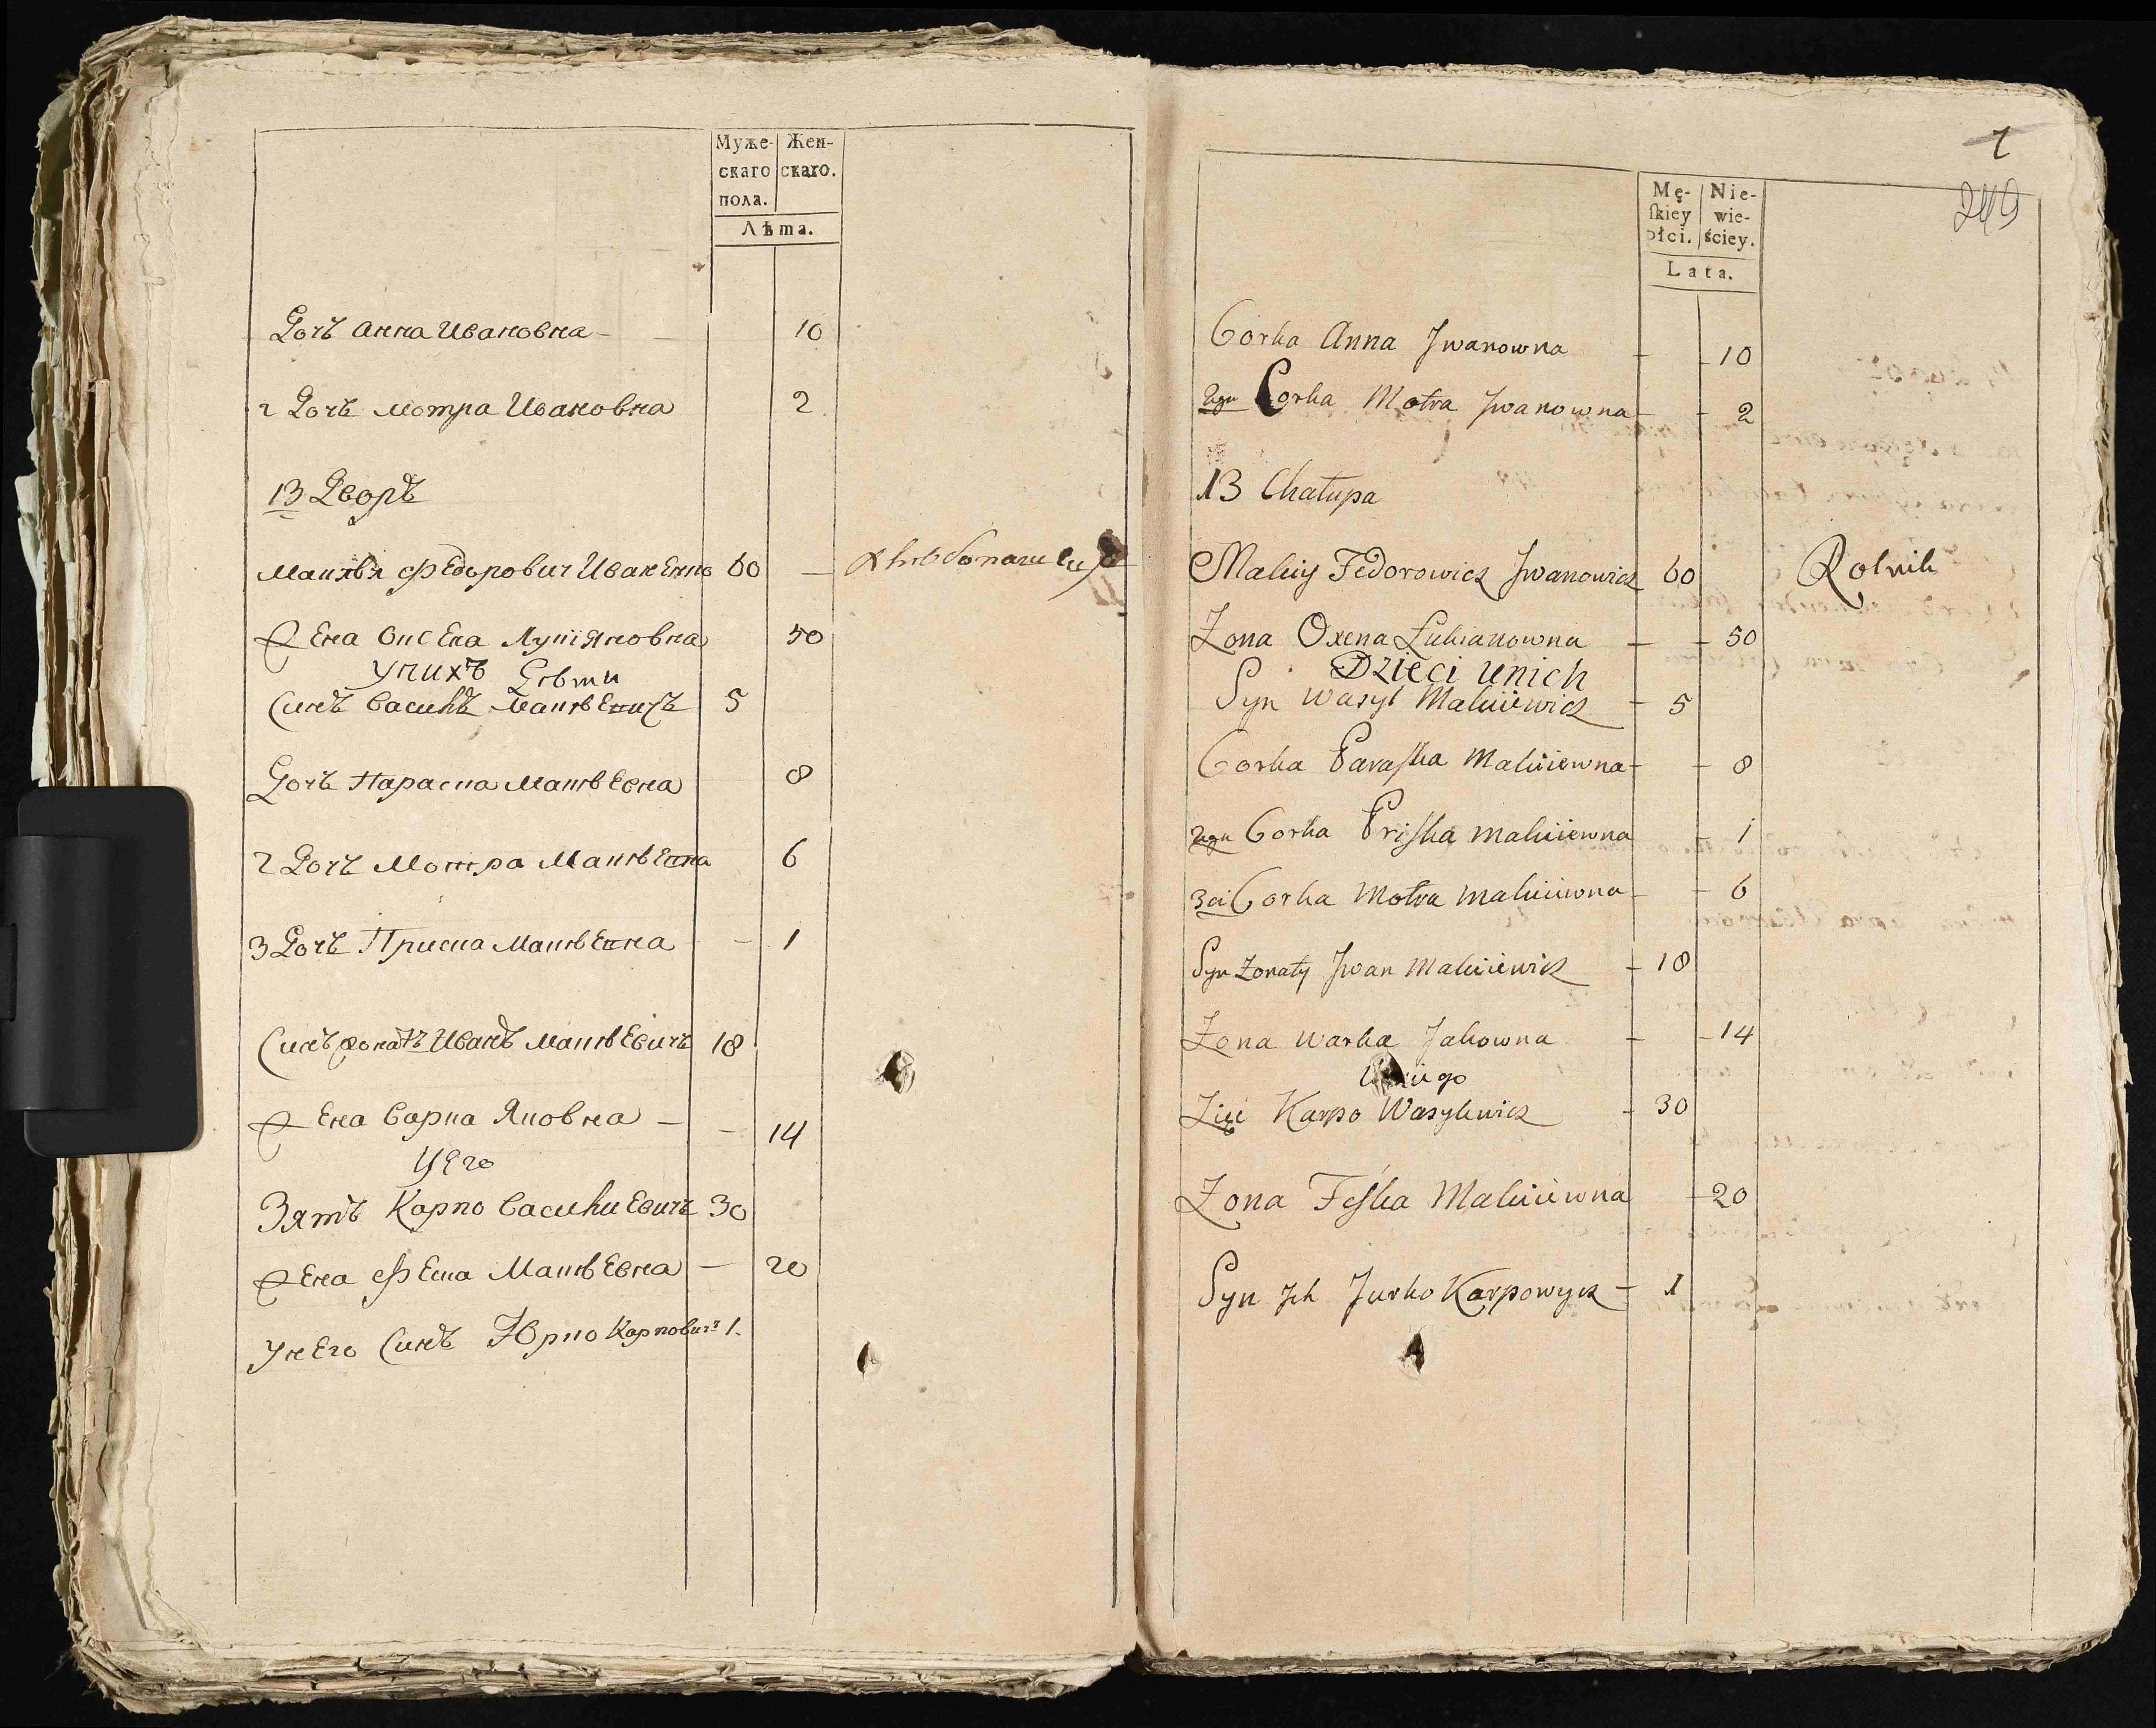 Муже- Жен-
скаго скаго.
пола.
Лѣта.
Дочъ Анна Ивановна 10
2 Дочъ Мотра Ивановна 2
13 Дворъ
Макѣй Федорович Иван 60
Жена Оксена Лукіяновна 50
У нихъ Дѣти
Синъ Василь 5
Дочъ Параска Макѣевна 8
2 Дочъ Мотра Макѣевна 6
3 Дочъ Приска Макѣевна 1
Синъ Жонатъ Иванъ Макѣевичъ 18
Жена Варка Яковна 14
У Его
Зятъ Карпо Василиевичъ 30
Жена Феска Макѣевна 20
У него Синъ Юрко Карповичъ 1.
1
249
Mę- Nie-
ſkiey wie-
płci. ściey.
Lata.
Corka Anna Jwanowna 10
2ga Corka Motra Jwanowna 2
13 Chałupa
Makiiy Fedorowicz Jwanowicz 60 Rolnik
Zona Oxena Łukianowna 50
Dzieci u nich
Syn Wasyl Makiiewicz 5
Corka Paraſka Makiiewna 8
2ga Corka Priſka Makiiewna 1
3cia Corka Motra Makiiewna 6
Syn Zonaty Jwan Makiiewicz 18
Zona Warka Jakowna 14
Zięć Karpo Wasylewicz 30
Zona Feſka Makiiewna 20
Syn Jch Jurko Karpowycz 1